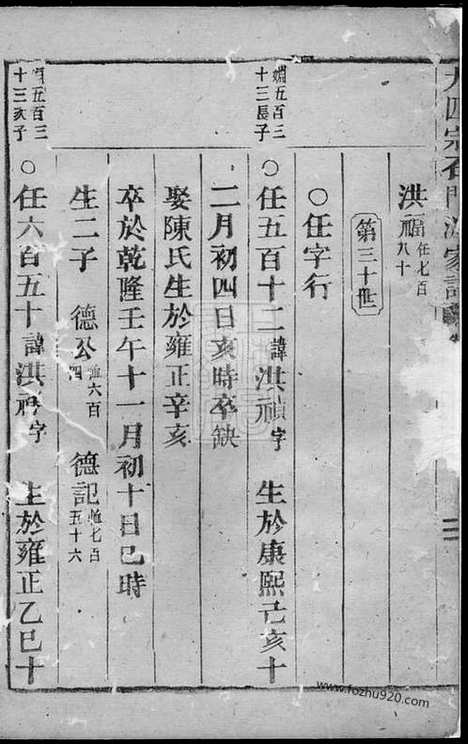 洪福任七百八十
第三十世
○任字行
五百三十三長子
○任五百十二諱洪禎字　生於康熙己亥十
二月初四日亥時卒缺
娶陳氏生於雍正辛亥
卒於乾隆壬午十一月初十日巳時
生二子　德公六百四　德記七百五十六
五百三十三次子
○任六百五十諱洪字　生於雍正乙巳十
www.fozhu920.com